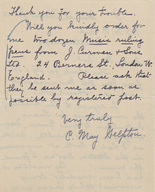 Thank you for your trouble.
Will you kindly order for
me two dozen Music ruling
pens from J. Curwen & Sons
Ltd., 24 Berners St., London W.
England. Please ask that
they be sent me as soon as
possible by registered post.
Very truly
C. May